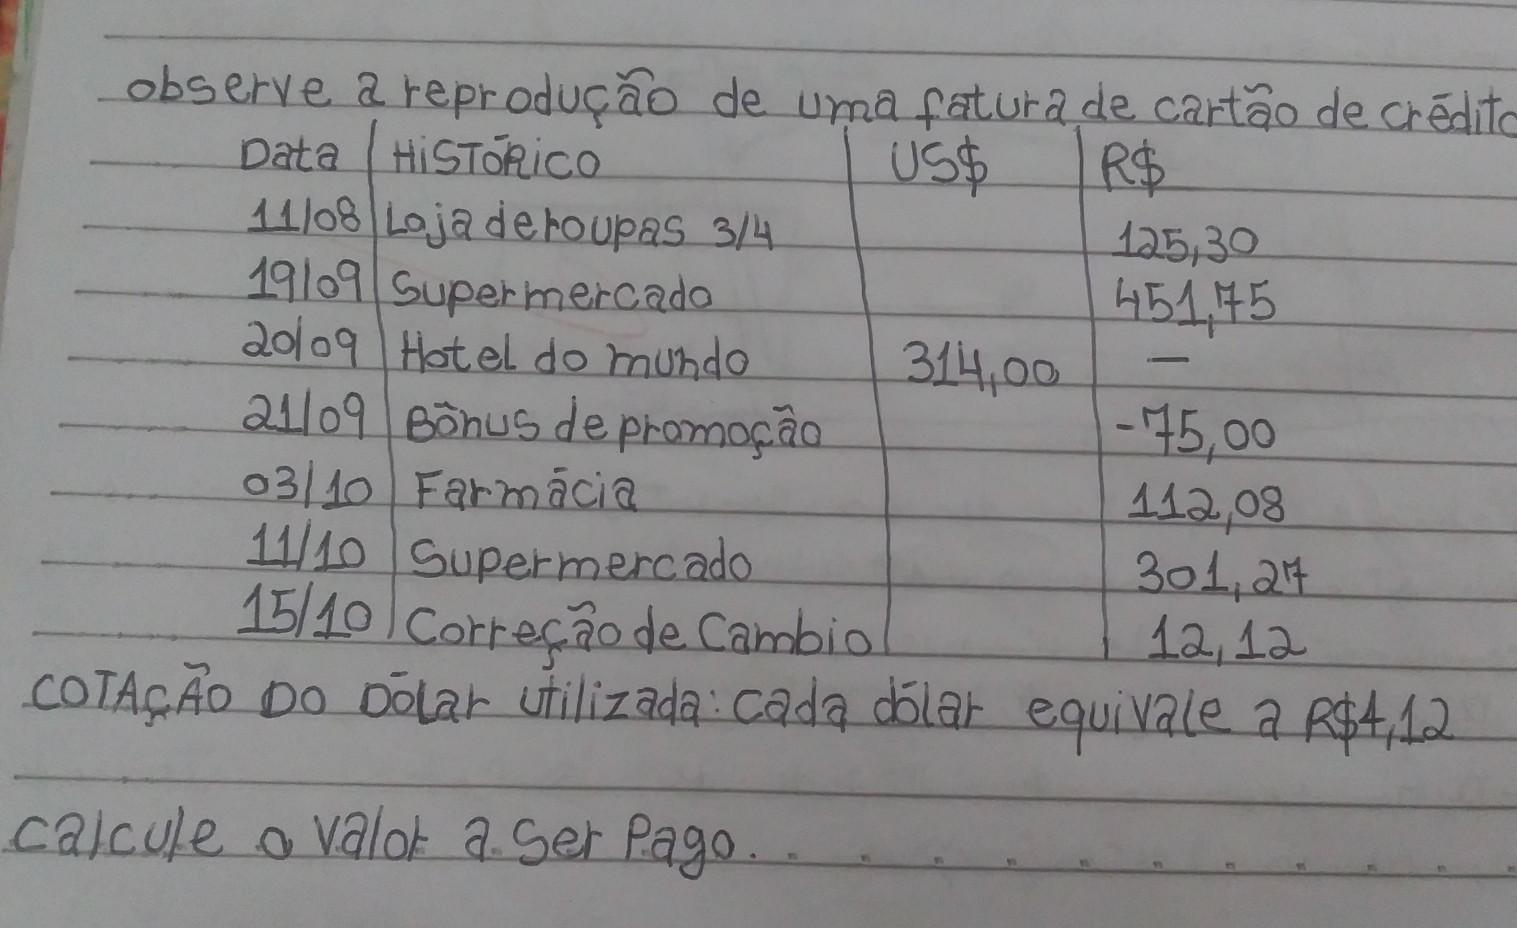 observe a reprodução de uma fatura de cartão de crédito
Data HiSTÓRiCO US$ R$
11/08 Loja de roupas 3/4 125,30
19/09 Supermercado 451,75
20/09 Hotel do mundo 314,00 —
21/09 Bônus de promoção -75,00
03/10 Farmácia 112,08
11/10 Supermercado 301,27
15/10 Correção de Cambio 12,12
COTAÇÃO DO DÓLar utilizada: cada dólar equivale a R$4,12
calcule o valor a ser Pago.